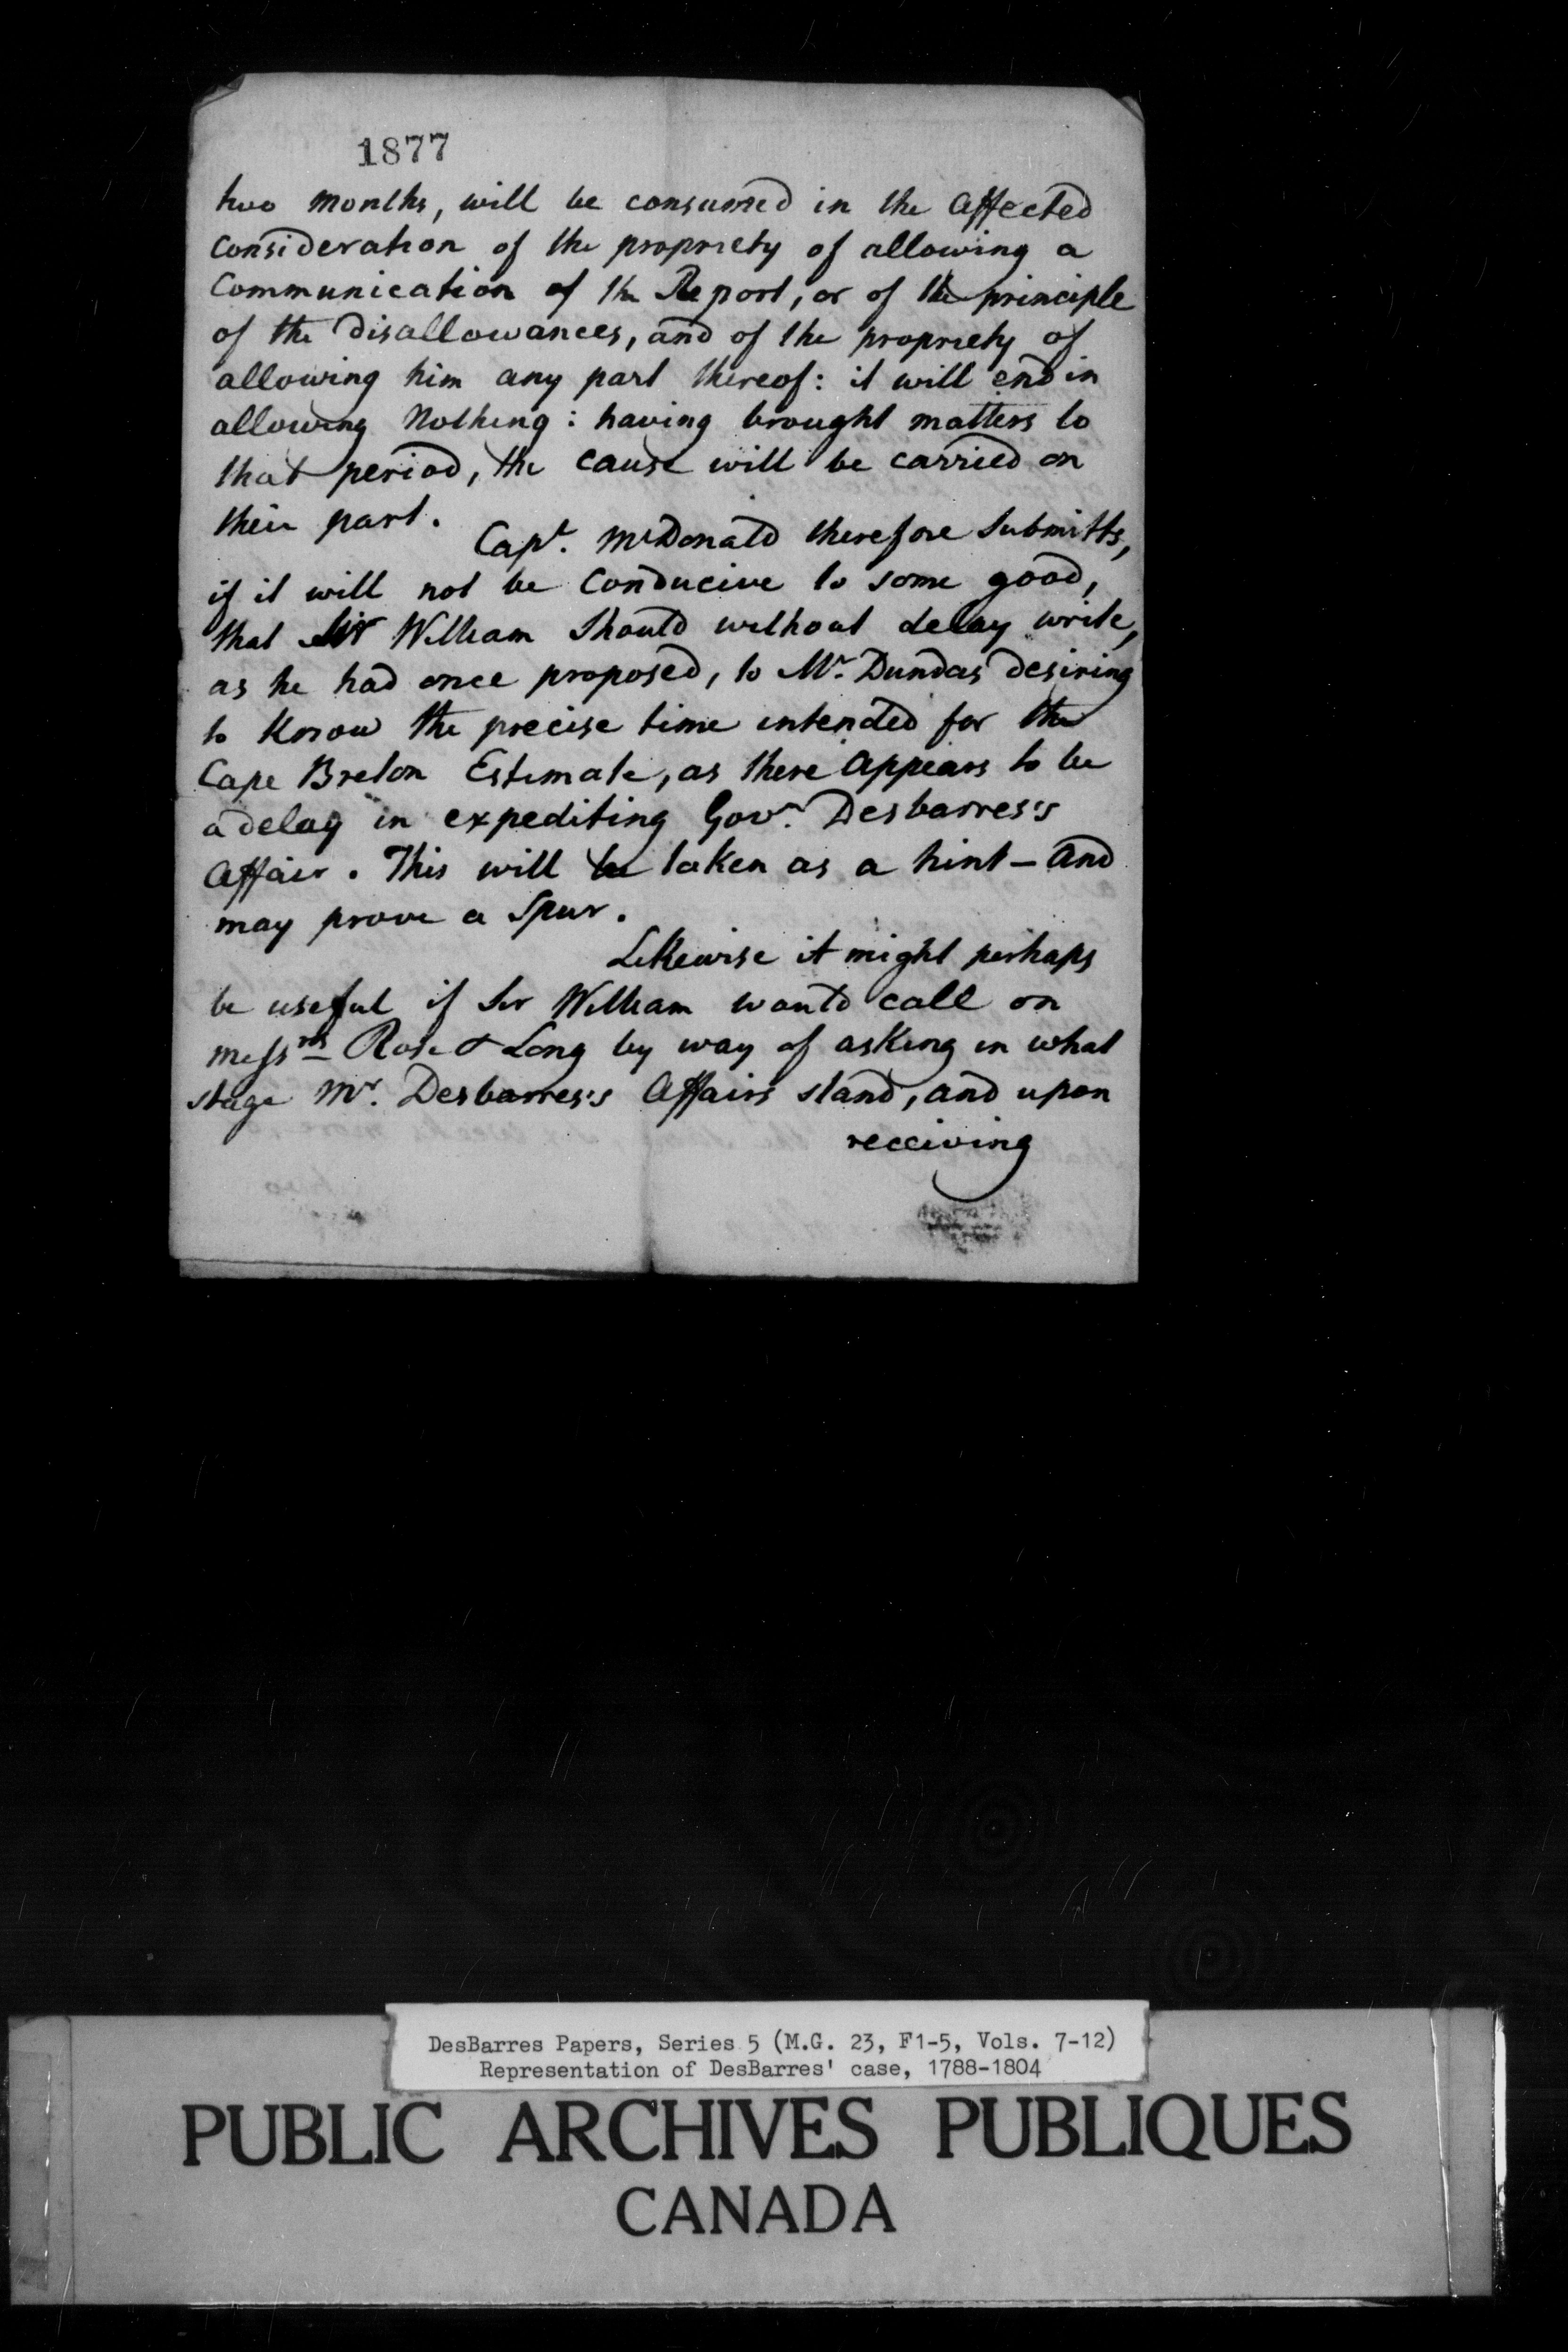 1877
two months, will be consumed in the affected
Consideration of the propriety of allowing a
Communication of the Report, or of the principle
of the Disallowances, and of the propriety of
allowing him any part thereof: it will end in
allowing Nothing: having brought matters to
that period, the Cause will be carried on
their part.
Capt. McDonald therefore Submitts,
if it will not be Conducive to some good,
that Sir William Should without delay write,
as he had once proposed, to Mr. Dundas desiring
to Know the precise time intended for the
Cape Breton Estimate, as there appears to be
a delay in expediting Govr. Desbarres's
Affair. This will be taken as a hint - and
may prove a Spur.
Likewise it might perhaps
be useful if Sir William would call on
Messrs Rose & Long by way of asKing in what
stage Mr. Desbarres's Affairs stand, and upon
receiving
DesBarres Papers, Series 5 (M.G. 23, F1-5, Vols. 7-12)
Representation of DesBarres' case, 1788-1804
PUBLIC ARCHIVES PUBLIQUES
CANADA